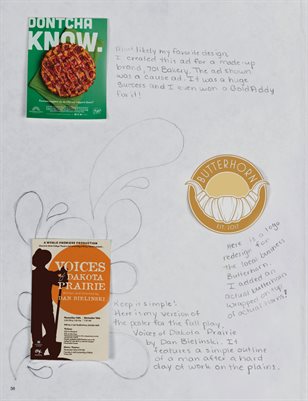 DONTCHA
KNOW.
Most likely my favorite design.
I created this ad for a made-up
brand, 701 Bakery. The ad shown
was a cause ad. It was a huge
success and I even won a Gold Addy
for it!
BUTTERHORN
EST. 2017
Here is a logo
redesign for
the local business
Butterhorn.
I added an
actual butterhorn
wrapped up
of actual
A WORLD PREMIERE PRODUCTION
VOICES
of the DAKOTA
PRAIRIE
DAN BIELINSKI
Keep it simple!
Here is my version of
the poster for the fall play,
Voices of Dakota Prairie
by Dan Bielinski. It
features a simple outline
of a man after a hard
day of work on the plains.
36